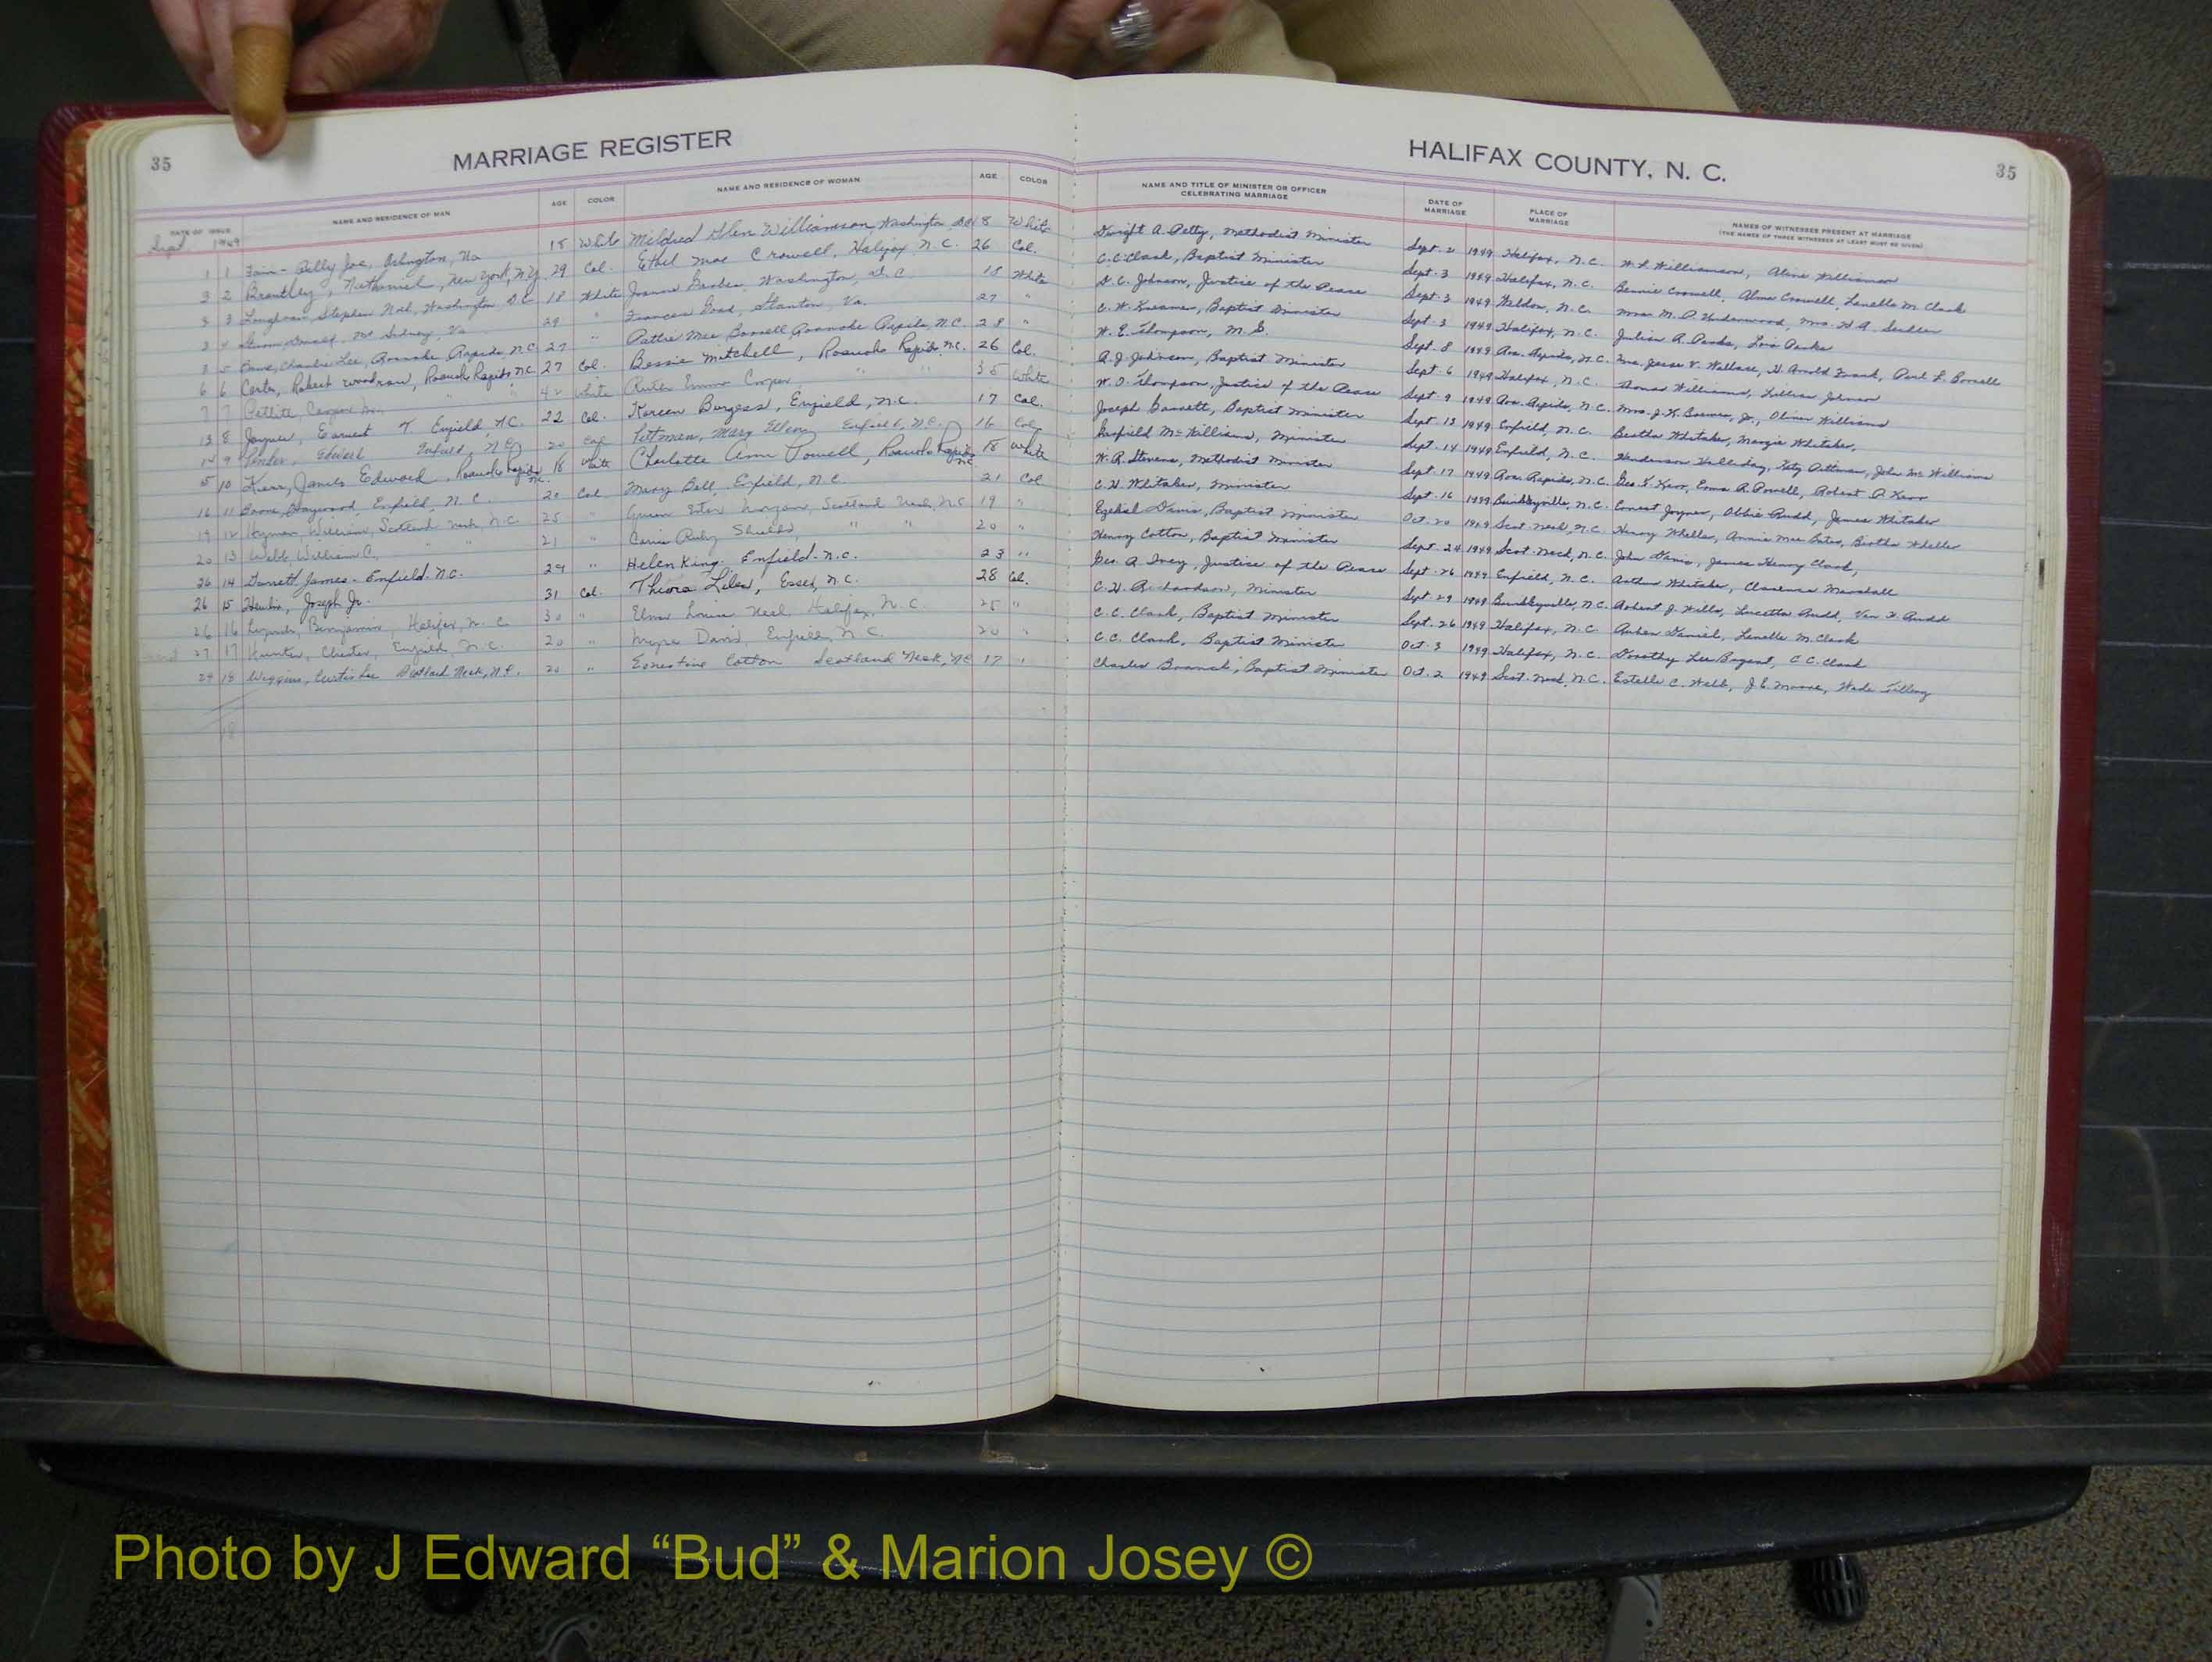 35
MARRIAGE REGISTER
DATE OF ISSUE
NAME AND RESIDENCE OF MAN
AGE
COLOR
NAME AND RESIDENCE OF WOMAN
AGE
COLOR
Sept 1949
1 1 Billy Joe, Arlington, Va 18 White Mildred Glen Williamson, Washington 18 White
3 2 Brantley, Nathaniel, New York, N.Y. 29 Col. Ethel Mae Crowell, Halifax, N.C. 26 Col.
3 3 Stephen Washington D.C. 18 White Washington, D.C. 18 White
3 4 Sidney, Va 29 " Frances Stanton, Va. 27 "
8 5 Charlie Lee, Roanoke Rapids, N.C. 27 " Pattie Mae Roanoke Rapids, N.C. 28 "
6 6 Carter, Robert Woodrow, Roanoke Rapids, N.C. 27 Col. Bessie Mitchell, Roanoke Rapids, N.C. 26 Col.
7 7 " " 42 White Ruth Emma Cooper " " 35 White
13 8 Joyner, Earnest T. Enfield N.C. 22 Col. Koreen Burgess, Enfield, N.C. 17 Col.
14 9 Edward Enfield, N.C. 20 Col Pittman, Mary Ellen Enfield, N.C. 16 Col.
15 10 Kerr, James Edward, Roanoke Rapids N.C. 18 White Charlotte Ann Powell, Roanoke Rapids N.C. 18 White
16 11 Boone, Haywood, Enfield, N.C. 20 Col Mary Bell, Enfield, N.C. 21 Col
19 12 Hyman, William, Scotland Neck, N.C. 25 " Scotland Neck, N.C. 19 "
20 13 Webb, William C. " " 21 " Carrie Ruby Shields, " " 20 "
26 14 Garrett James - Enfield. N.C. 29 " Helen King. Enfield. N.C. 23 "
26 15 Joseph Jr. 31 Col. Thiora Liles, Essex, N.C. 28 Col.
26 16 Benjamin, Halifax, N.C. 30 " Elma Louise Neal Halifax, N.C. 25 "
27 17 Hunter, Chester, Enfield, N.C. 20 " Davis, Enfield, N.C. 20 "
29 18 Wiggins, Curtis Lee Scotland Neck, N.C. 20 " Ernestine Cotton Scotland Neck, NC 17 "
HALIFAX COUNTY, N. C.
35
NAME AND TITLE OF MINISTER OR OFFICER
CELEBRATING MARRIAGE
DATE OF
MARRIAGE
PLACE OF
MARRIAGE
NAMES OF WITNESSES PRESENT AT MARRIAGE
(THE NAMES OF THREE WITNESSES AT LEAST MUST BE GIVEN)
Dwight A. Petty, Methodist Minister Sept. 2 1949 Halifax, N.C. Williamson, Aline Williamson
C.C. Clark, Baptist Minister Sept. 3 1949 Halifax, N.C. Bennie Crowell, Alma Crowell, Lenella M. Clark
Johnson, Justice of the Peace Sept. 3 1949 Weldon, N.C. Mrs. M. P. Underwood, Mrs.
C. W. Baptist Minister Sept. 3 1949 Halifax, N.C. Julian R. Parks, Lois Parks
W. E. Thompson, M.G. Sept. 8 1949 Roa. Rapids, N.C. Mrs. Jesse V. Wallace, H. Arnold
A. J. Johnson, Baptist Minister Sept. 6 1949 Halifax, N.C. Williams, Lillian Johnson
W. O. Thompson, Justice of the Peace Sept. 9 1949 Roa. Rapids, N.C. Mrs. Jr., Oliver Williams
Joseph Garrett, Baptist Minister Sept. 13 1949 Enfield, N.C. Bertha Whitaker, Margie Whitaker,
Garfield McWilliams, Minister Sept. 14 1949 Enfield, N.C. Henderson Holliday, Katy Pittman, John McWilliams
W. R. Stevens, Methodist Minister Sept. 17 1949 Roa. Rapids, N.C. Geo. T. Kerr, Emma R. Powell, Robert D. Kerr
C. H. Whitaker, Minister Sept. 16 1949 Brinkleyville, N.C. Ernest Joyner, Obbie Rudd, James Whitaker
Ezekial Davis, Baptist Minister Oct. 20 1949 Scot. Neck, N.C. Henry Wheller, Annie Mae Bertha Wheller
Henry Cotton, Baptist Minister Sept. 24 1949 Scot. Neck, N.C. John Davis, James Henry Clark,
Geo. A. Ivey, Justice of the Peace Sept. 26 1949 Enfield, N.C. Arthur Whitaker, Clarence Marshall
C. H. Richardson, Minister Sept. 29 1949 Brinkleyville, N.C. Robert J. Mills, Lucetta Rudd, Van Rudd
C. C. Clark, Baptist Minister Sept. 26 1949 Halifax, N.C. Daniel, Lenelle M. Clark
C.C. Clark, Baptist Minister Oct. 3 1949 Halifax, N.C. Dorothy Lee C.C. Clark
Charles Branch, Baptist Minister Oct. 2 1949 Scot. Neck, N.C. Estelle C. Webb, J.E. Moore, Wade Tillery
Photo by J Edward “Bud” & Marion Josey ©